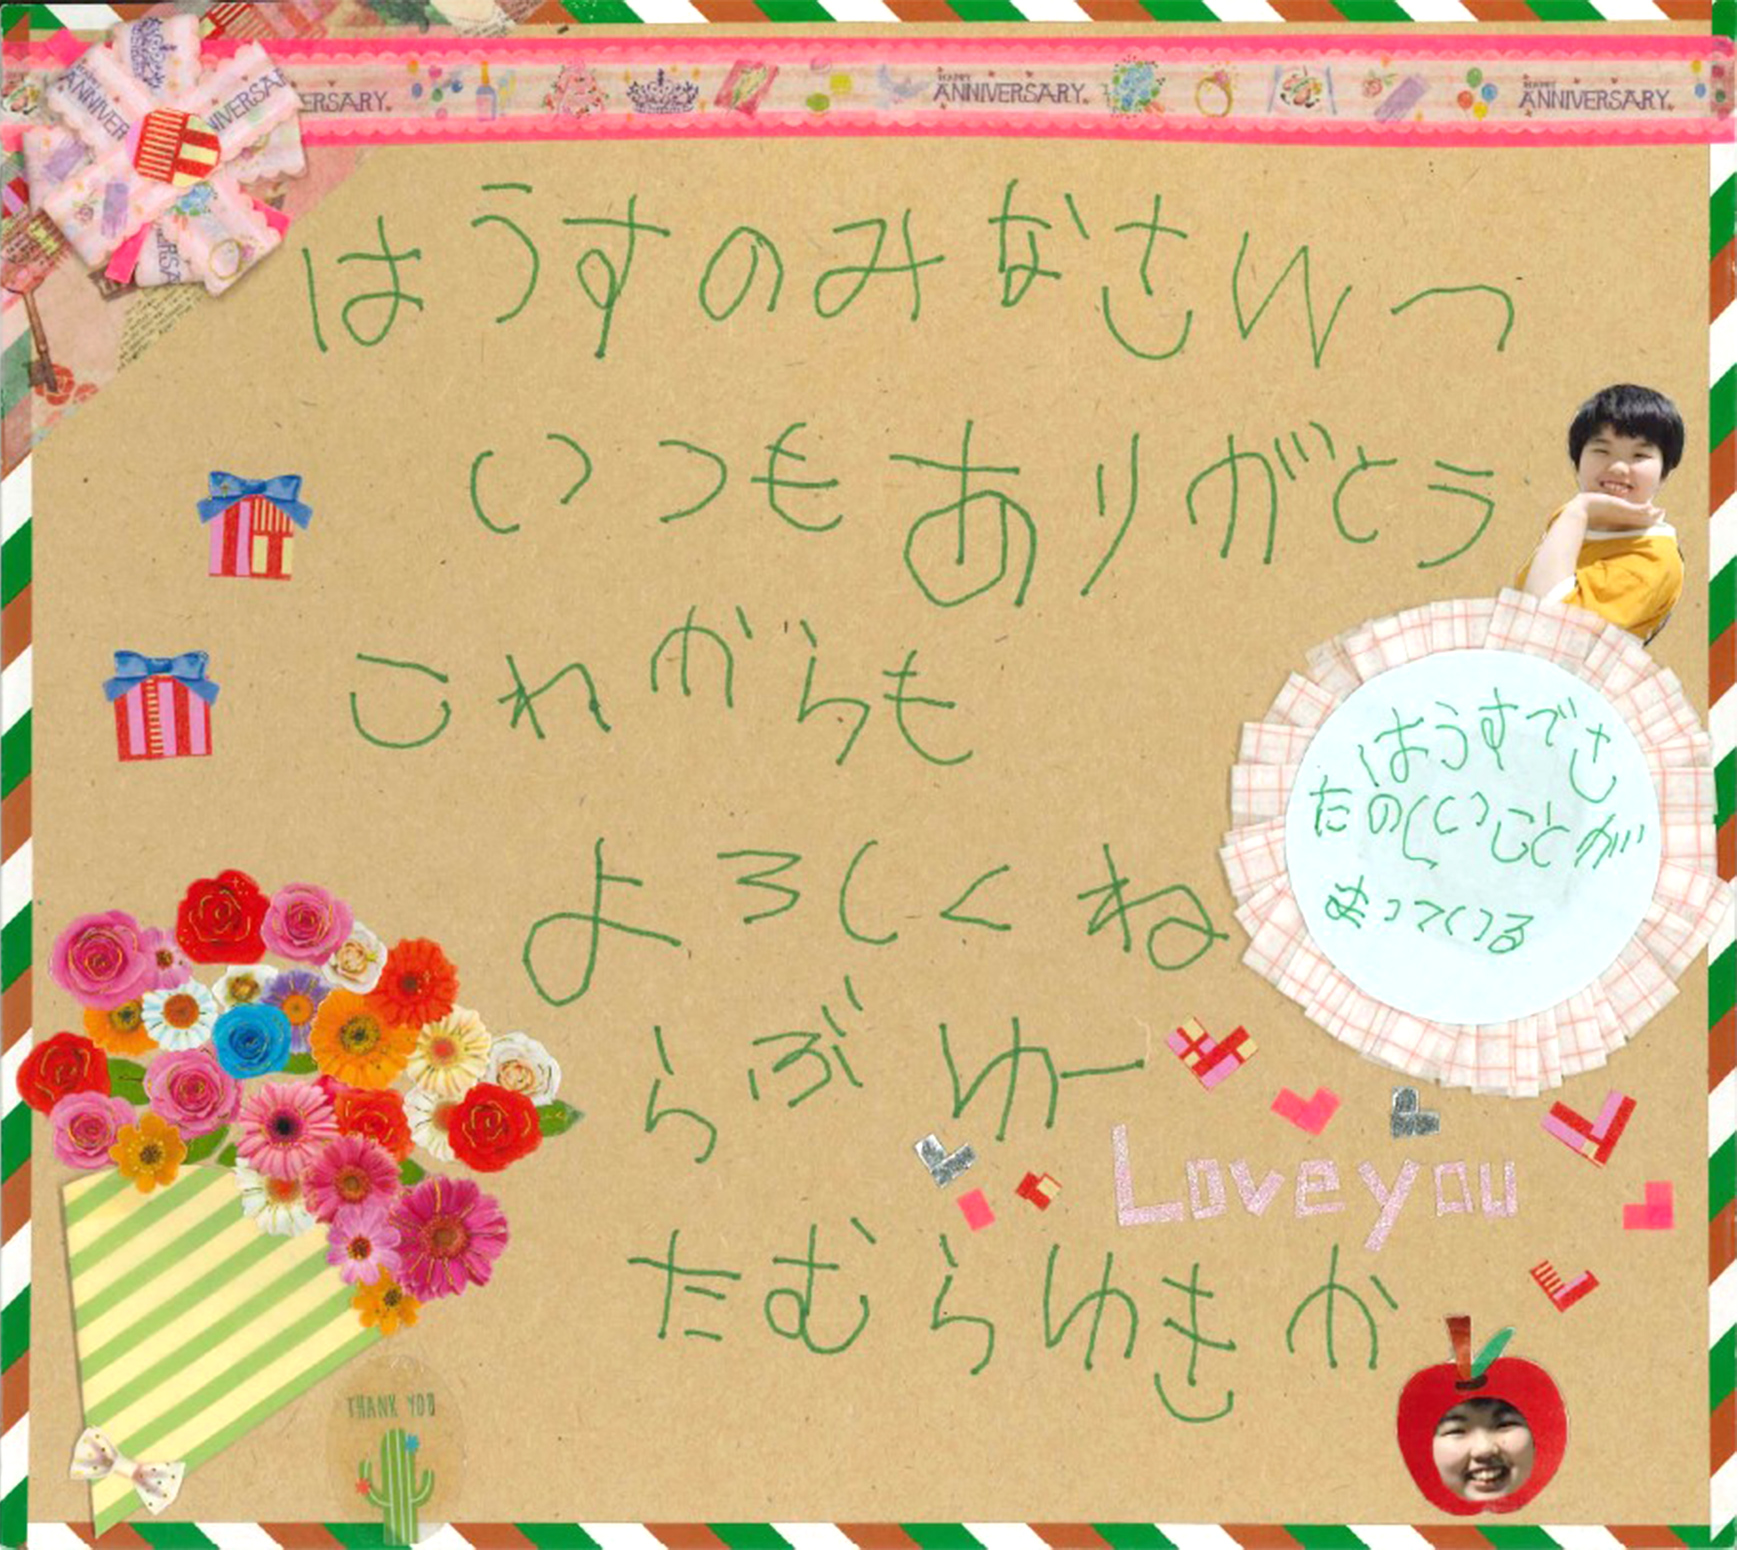 HAPPY ANNIVERSARY
HAPPY ANNIVERSARY
ERSARY
ANNIVER
IVERSA
はうすのみなさんへ
いつもありがとう
これからも
よろしくね
らぶゆー
Love you
たむらゆきか
はうすでさ
たのしいことが
まっている
THANK YOU